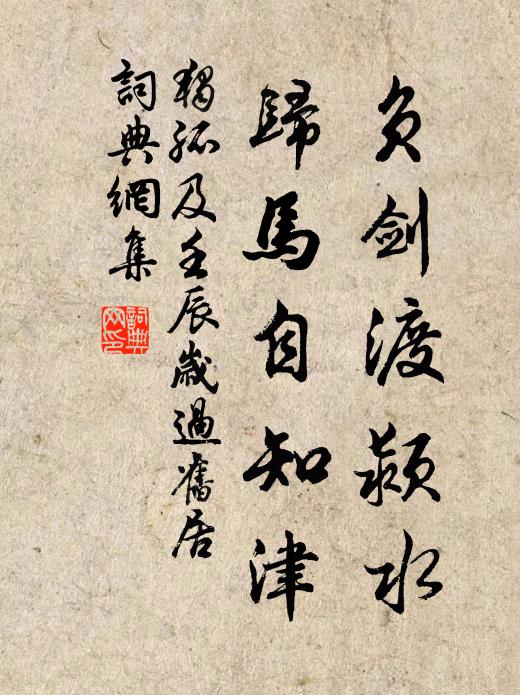 负剑渡颍水
歸馬自知津
獨孤及壬辰歲過舊居
詞典網集
詞典網印